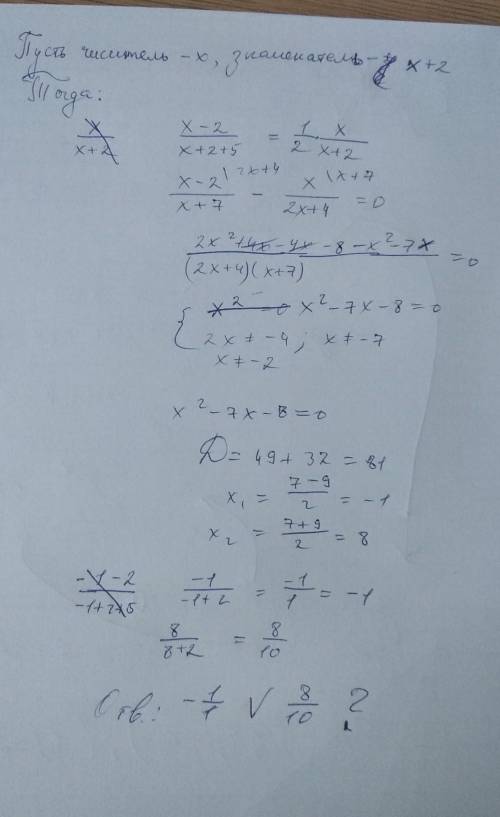 Пусть числитель - x, знаменатель - x+2
Тогда:
x/(x+2) (x-2)/(x+2+5) = 1/2 · x/(x+2)
(x-2)/(x+7) \2x+4 - x/(2x+4) \x+7 = 0
(2x²+4x-4x-8-x²-7x)/((2x+4)(x+7)) = 0
{ x² = 0 x²-7x-8=0
2x≠-4; x≠-7
x≠-2
x²-7x-8=0
D=49+32=81
x₁ = (7-9)/2 = -1
x₂ = (7+9)/2 = 8
(-1-2)/(-1+2+5) -1/(-1+2) = -1/1 = -1
8/(8+2) = 8/10
Отв.: -1/1 V 8/10 ?